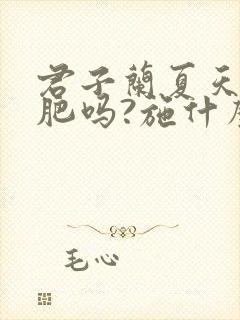 君子兰夏天
肥吗?施什
毛心